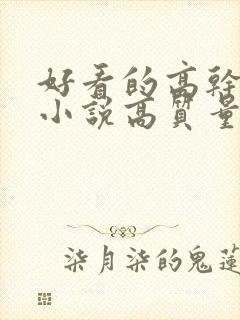 好看的高幹
小說高質量
柒月柒的鬼蓮